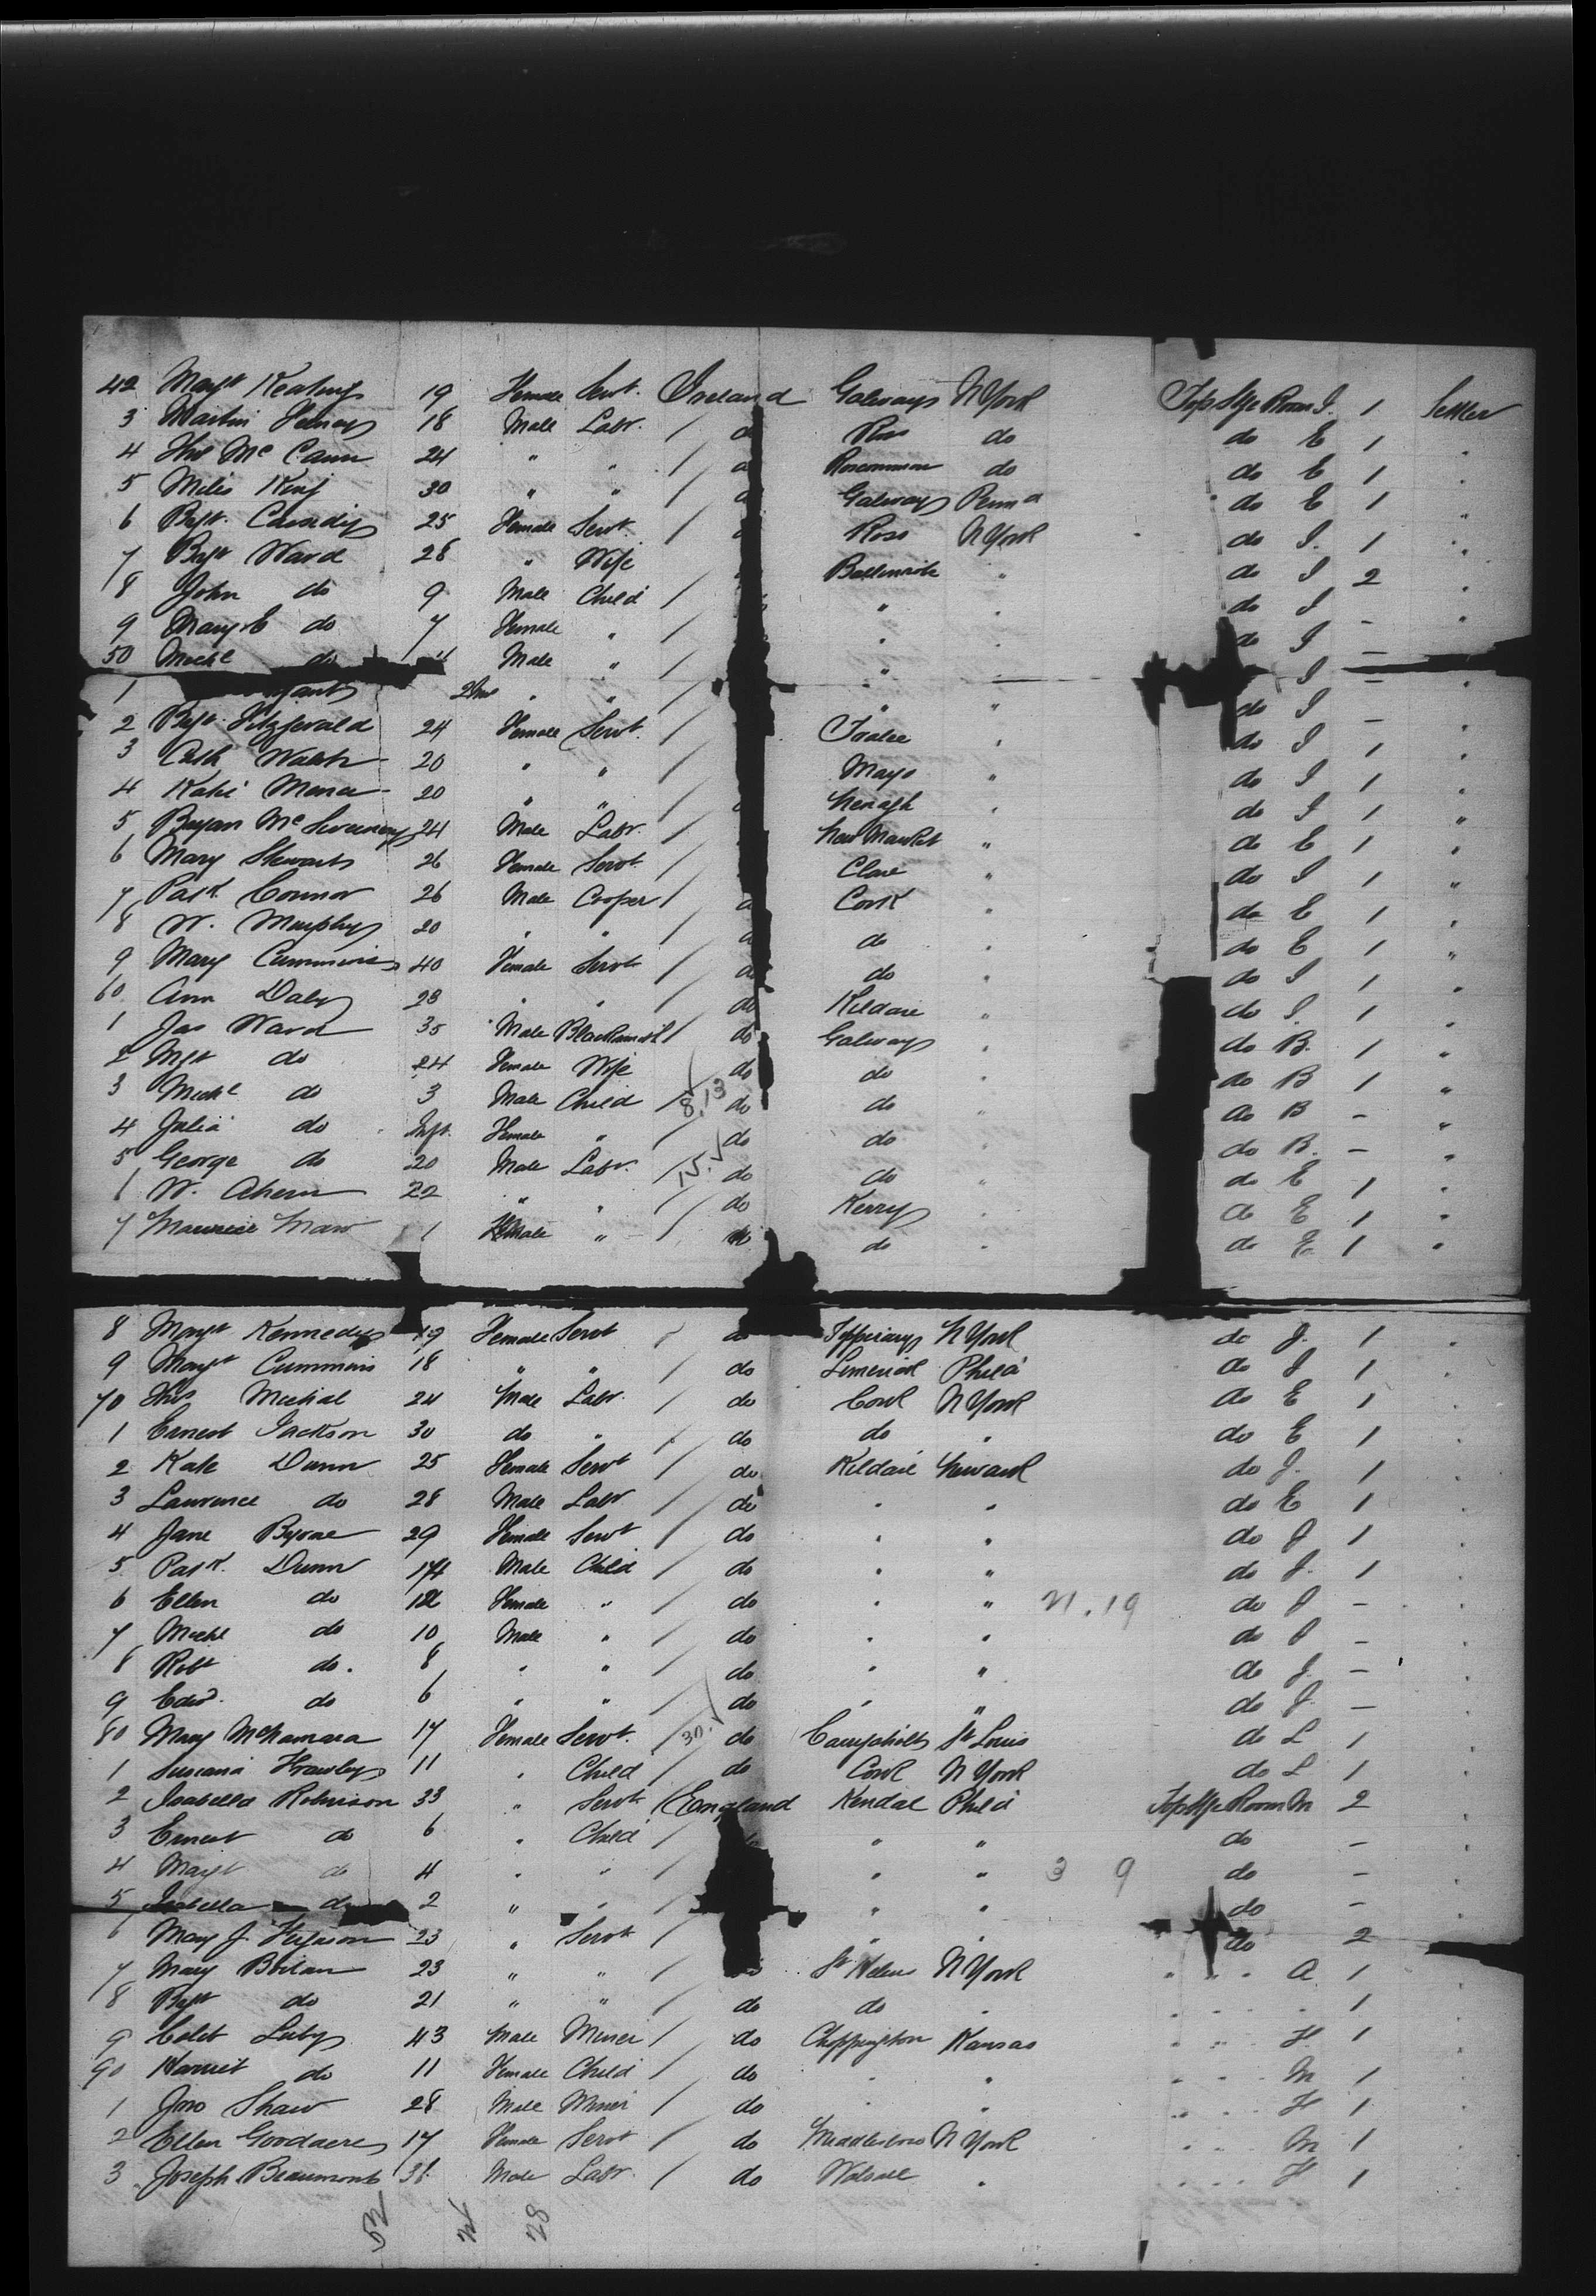 42 Margt Keating 19 Female Servt. Ireland Galway N York Top Stge Room I. 1 Settler
3 Martin 18 Male Labr. / d Ross do do E 1 .
4 Thos Mc Cann 24 " " / d Roscommon do do E 1 .
5 Miles King 30 " " / d Galway Penna do E 1 "
6 Bgt. Cassidy 25 Female Servt. / Ross N York do I. 1 "
7 Bgt Ward 28 " Wife do I 2 .
8 John do 9 Male Child / " . do I - .
9 Mary E do 7 Female " / . . do I -
50 Michl do 4 Male " / " . I - .
1 " " / " " do I - .
2 Bgt. Fitzgerald 24 Female Servt. / Tralee . do I 1 .
3 Cath Walsh 20 " " / Mayo " do I 1 .
4 Katie 20 " " / Nenagh . do I 1 "
5 Bryan Mc Sweeney 24 Male Labr. / New Market " do E 1 "
6 Mary Stewart 26 Female Servt. / Clare " do I 1 "
7 Patk. Connor 26 Male Cooper / d Cork . do E 1 .
8 W. Murphy 20 . " / d do . do E 1 "
9 Mary Cummins 40 Female Servt / do do . do I 1 .
60 Ann Daly 28 . . / do Kildare " do I. 1 .
1 Jas Ward 35 Male Blacksmith / do Galway . do B. 1 "
2 Mgt do 24 Female Wife / do do . do B 1 "
3 Michl do 3 Male Child / 8.13 do do " do B - "
4 Julia do Inft. Female " / do do . do B. - "
5 George do 20 Male Labr. / 15. do do " do E 1 .
6 W. Ahern 22 " . / do Kerry . do E 1 .
7 Maurice 1 Male " / do do . do E 1 "
8 Margt Kennedy 19 Female Servt / do Tipperary N York do J. 1 .
9 Margt Cummins 18 " " / do Limerick Phila do J 1 .
70 Thos 24 Male Labr. / do Cork N York do E 1 .
1 Ernest Jackson 30 do " / do do " do E 1 .
2 Kate Dunn 25 Female Servt / do Kildare Newark do J. 1 .
3 Laurence do 28 Male Labr / do . " do E 1 .
4 Jane Byrne 29 Female Servt / do . " do J 1 .
5 Patk. Dunn 14 Male Child / do . " do J. 1 .
6 Ellen do 12 Female " / do . " 21.19 do J - .
7 Michl do 10 Male " / do . " do J - .
8 Robt do. 8 . " / do . " do J. - .
9 Edwd. do 6 " " / do . " do J. - .
80 Mary McNamara 17 Female Servt. / 30. do St Louis do L 1 .
1 Susana Frawley 11 . Child / do Cork N York do L 1 .
2 Isabella Robinson 33 " Servt. / England Kendal Phila Top Stge Room M 2 .
3 Ernest do 6 . Child / " " do - .
4 Margt do 4 . " / " " 3 9 do - .
5 Isabella do 2 " " / " " do - .
6 Mary J. Ferguson 23 " Servt / . . do 2
7 Mary Boylan 23 " " / St Helens N York " " " A 1 .
8 Bgt do 21 " " / do do . . . . . 1 .
9 Luby 43 Male Miner / do Choppington Kansas " " " H 1 .
90 Harriet do 11 Female Child / do . " " " M 1 .
1 Jno Shaw 28 Male Miner / do . " " " H 1 .
2 Ellen Goodacre 17 Female Servt / do Middlesboro N York . . . M 1 .
3 Joseph Beaumont 38 Male Labr. / do Walsall . . . . H 1 .
52 24 28